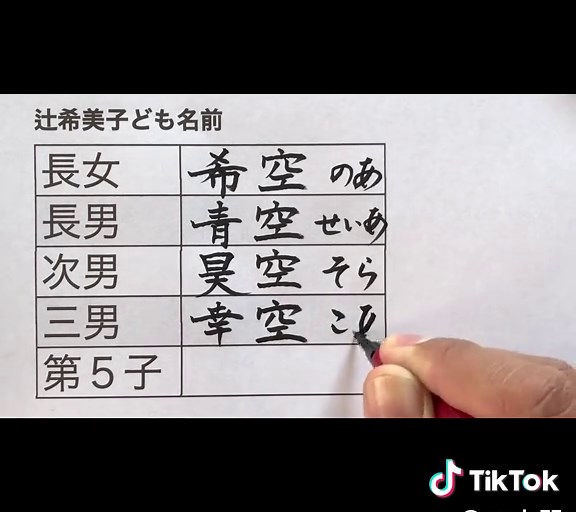 辻希美子ども名前
長女 希空 のあ
長男 青空 せいあ
次男 昊空 そら
三男 幸空 こ
第5子
TikTok